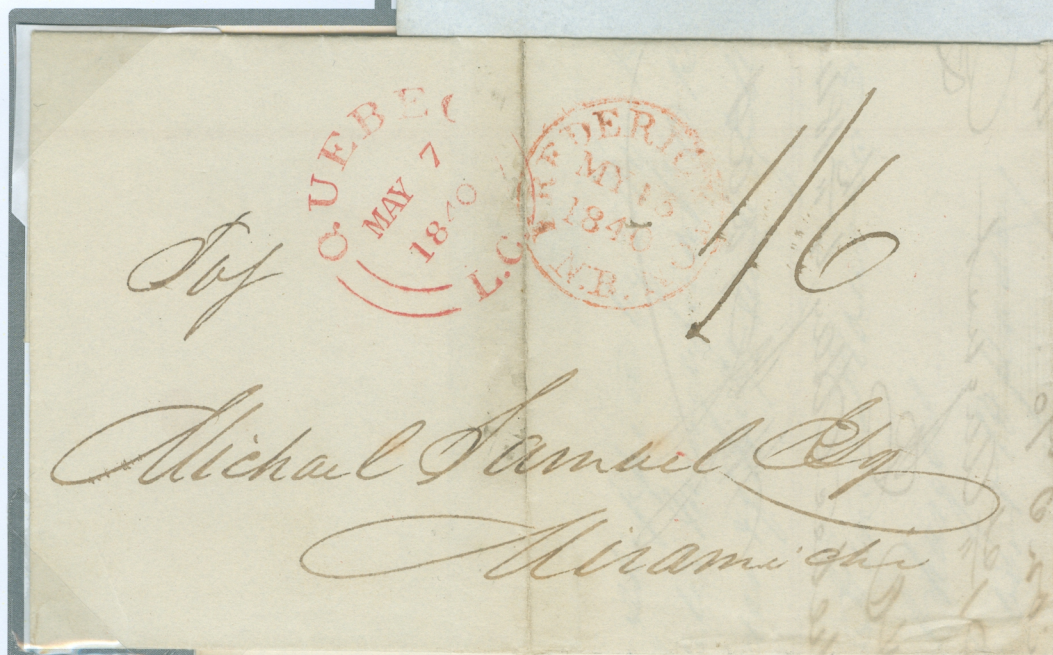 QUEBEC
MAY 7
1840
L.C.
FREDERICTON
MY 13
1840
N.B.
1/6
Michael Samuel Esq
Miramichi